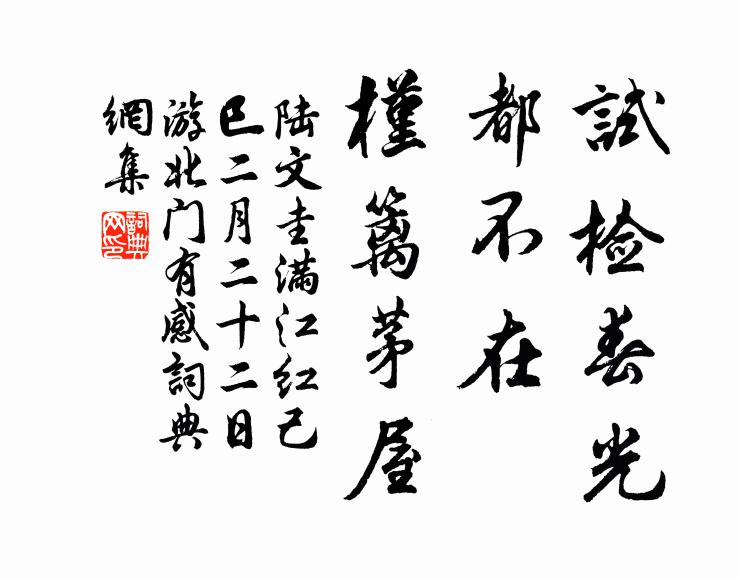 試檢春光
都不在
槿篱茅屋
陆文圭满江红己
巳二月二十二日
游北门有感詞典
網集
詞典
网印